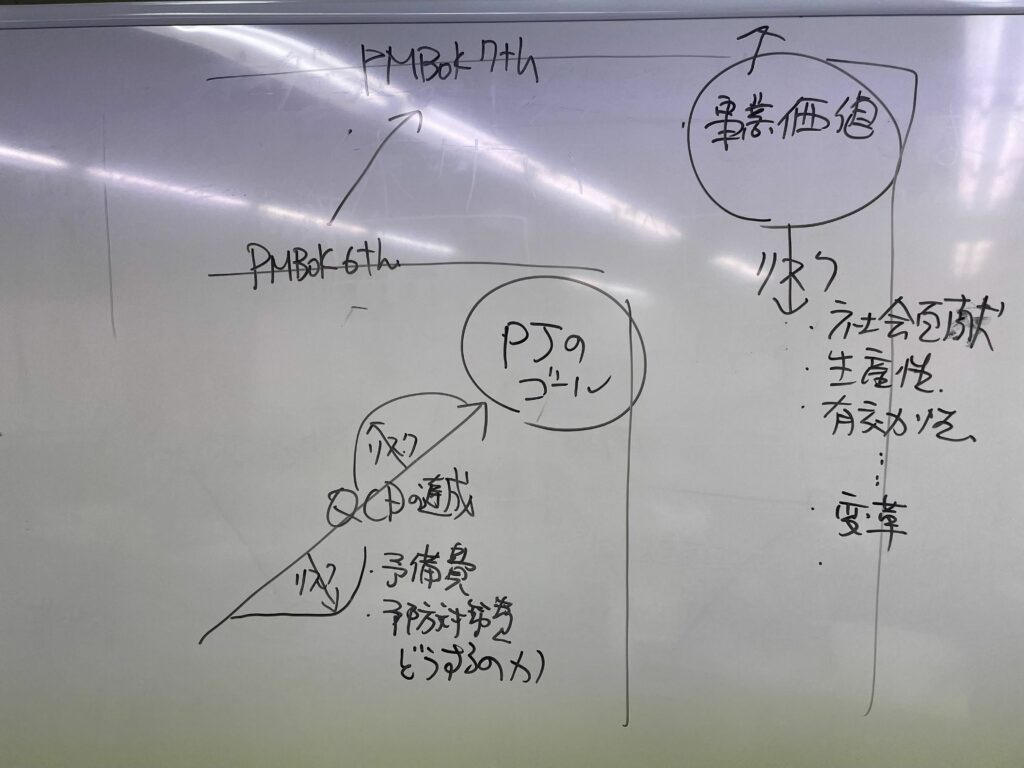 PMBOK 7th
事業価値
リスク
・社会貢献
・生産性
・有効力
⋮
・変革
・
PMBOK 6th
PJの
ゴール
リスク
QCDの達成
リスク
・予備費
・予防対策等
どうするのか